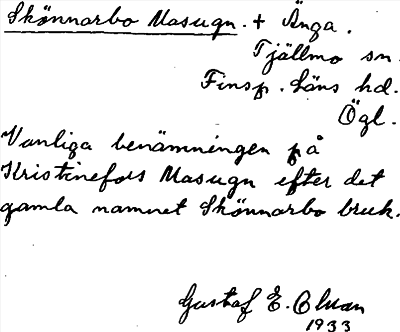 Skönnarbo Masugn. + Änga.
Tjällmo sn.
Finsp. läns hd.
Ögl.
Vanliga benämningen på
Kristinefors Masugn efter det
gamla namnet Skönnarbo bruk.
Gustaf E.
1933